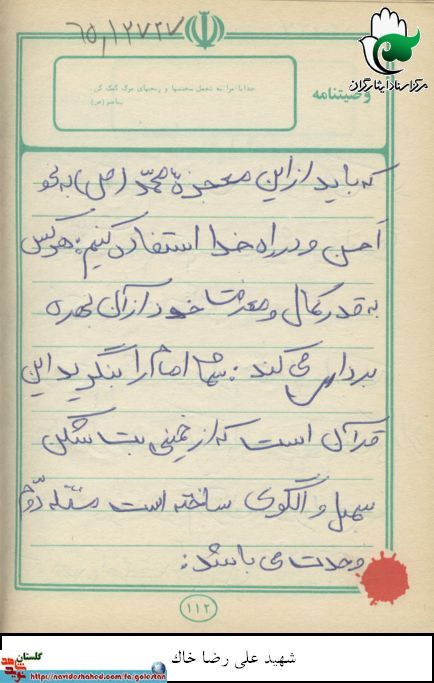 ۶۵,۱۲۷۲۷
مرکز اسناد ایثارگران
وصیتنامه
خدایا مرا به تحمل سختیها و رنجهای مرگ کمک کن.
پیامبر (ص)
که باید از این معجزهٔ محمّد (ص) به نحو
احسن و در راه خدا استفاده کنیم: هر کس
به قدر کمال و معرفت خود از آن بهره
برداری می کند: شما امام را بنگرید این
قرآن است که از خمینی بت شکن
سمبل و الگوی ساخته است مسئله دوّم
وحدت می باشد:
۱۱۲
شهید علی رضا خاک
گلستان
https://navideshahed.com/fa/golestan